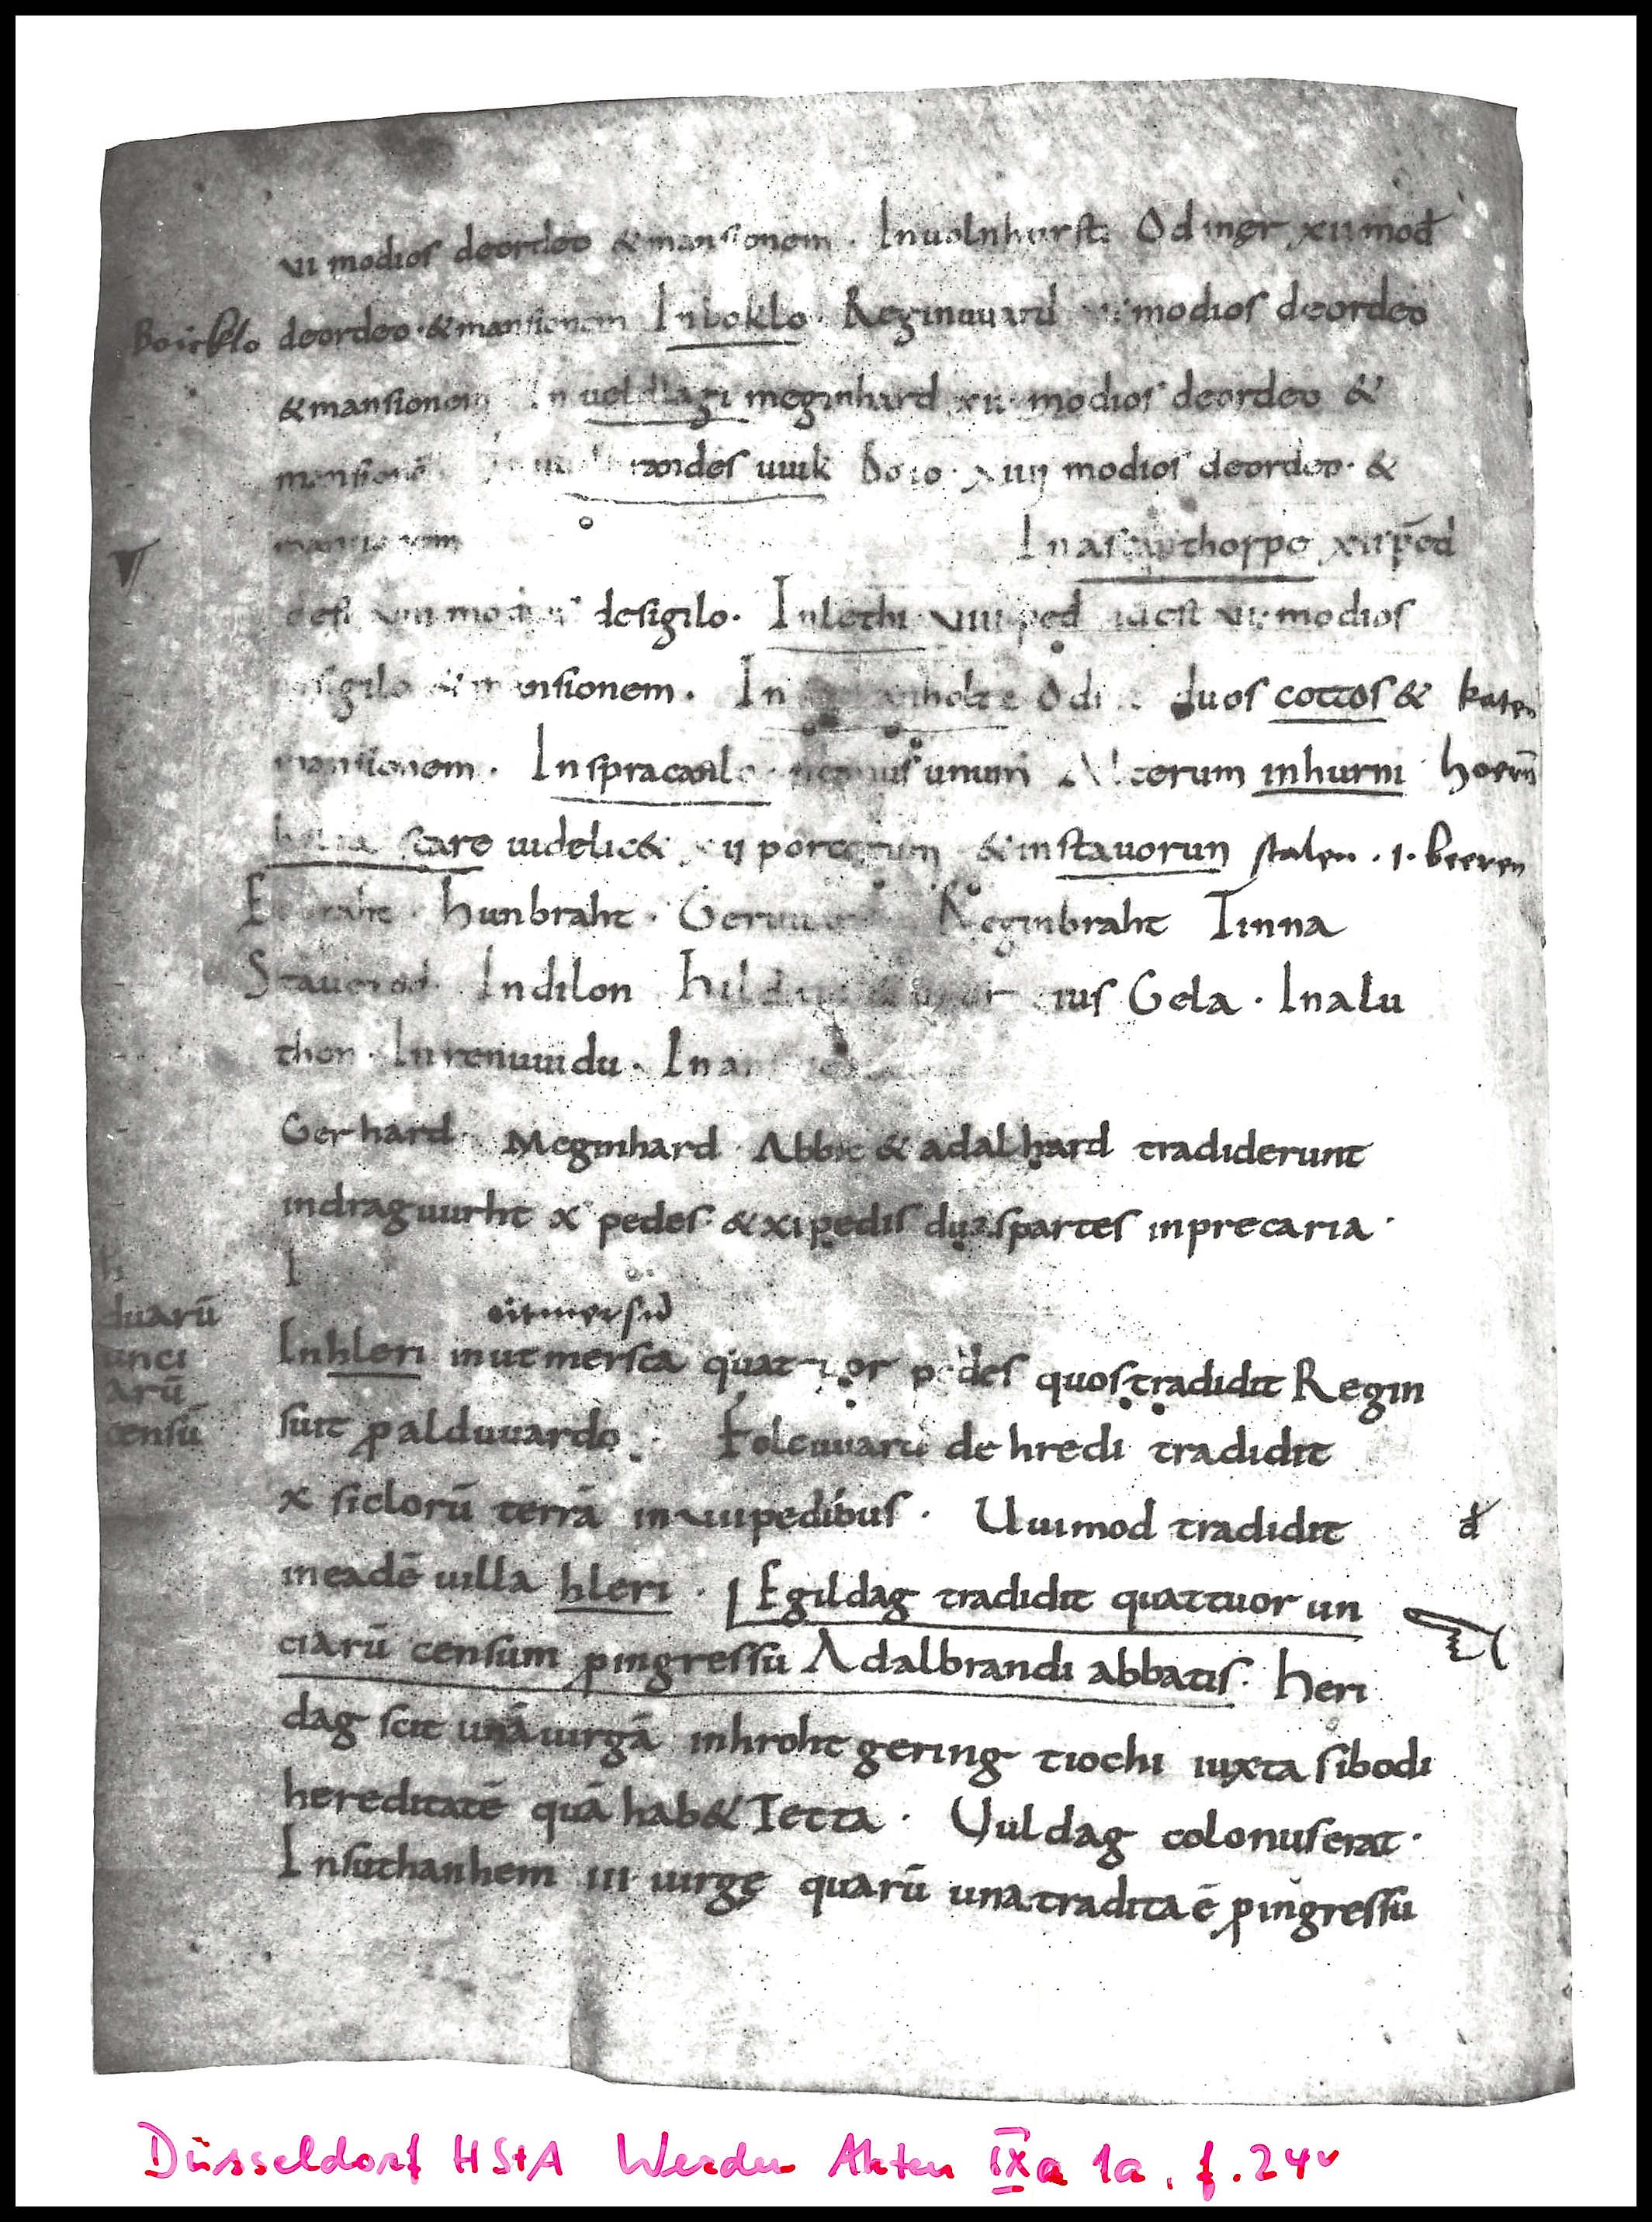 vi modios deordeo & mansionem. Inuolnhurst. Odinger xii mod
Boicklo deordeo. & mansionem Inboklo. Reginuuard vi modios deordeo
& mansionem In ueldlagi meginhard xii modios deordeo &
mansionē uuik boio. xiiii modios deordeo. &
mansionem Inascanthorpe xii ped
modios desigilo. Inlethi viii ped idest xii modios
sigilo & mansionem. In holte duos cottos & katen
mansionem. In spracanlo unum Alterum inhurni horrn
scaro uidelic& xii porcorum & instauorun stalen . 1. beeren
hunbraht. Reginbraht Tinna
Indilon eius Gela. Inalu
then. Inrenuuidu.
Gerhard. Meginhard. Abbic & adalhard tradiderunt
indraguurht x pedes. & xi pedis duas partes inprecaria.
h I
duarū
unci
arū
censū
Inhleri inutmersca quattuor pedes quos tradidit Regin
suit ꝑ alduuardo. Folcuuard de hredi tradidit
x siclorū terrā in viii pedibus. Uuimod tradidit đ
ineadē uilla hleri. Egildag tradidit quattuor un
ciarū censum ꝑingressu Adalbrandi abbatis. heri
dag scit unā uirgā inhroht gering tiochi iuxta sibodi
hereditatē quā hab& Tetta. Uuldag colonus erat.
Insuthanhem iii uirgę quarū una tradita ē ꝑingressu
Düsseldorf HStA Werden Akten IXa 1a, f. 24v